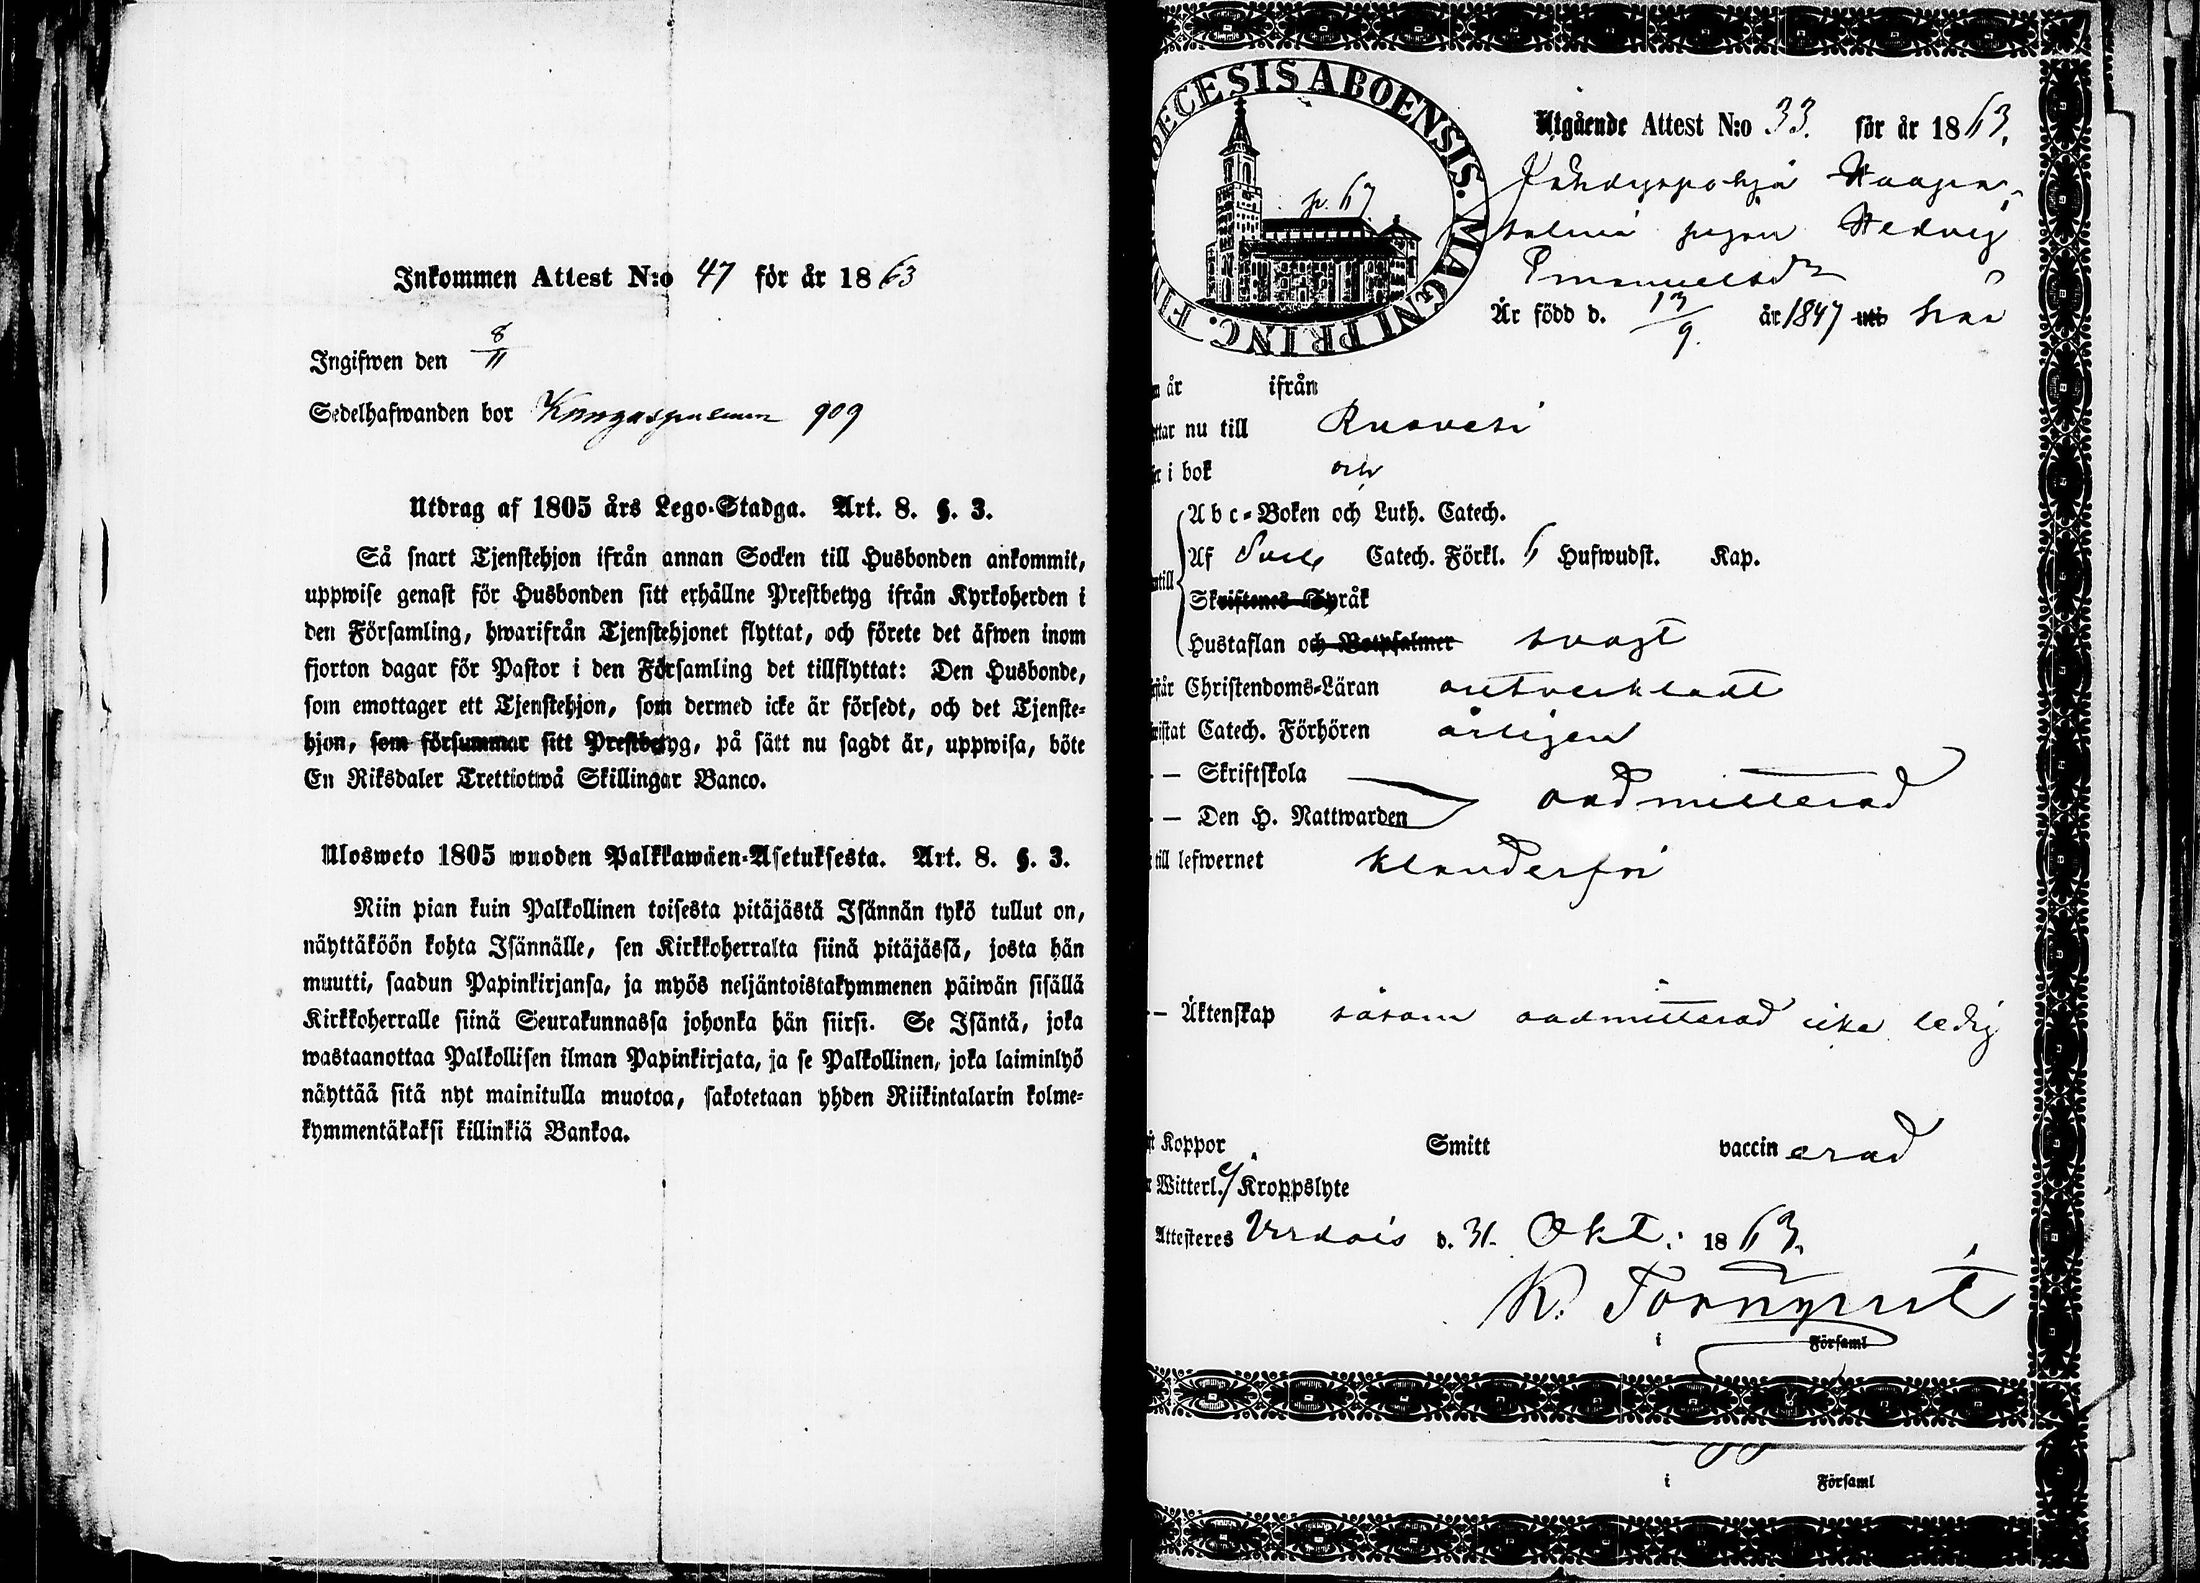 Inkommen Attest N:o 47 för år 1863
Ingifwen den 8/11
Sedelhafwanden bor 909
Utdrag af 1805 års Lego-Stadga. Art. 8. §. 3.
Så snart Tjenstehjon ifrån annan Socken till Husbonden ankommit,
uppwise genast för Husbonden sitt erhållne Prestbetyg ifrån Kyrkoherden i
den Församling, hwarifrån Tjenstehjonet flyttat, och förete det äfwen inom
fjorton dagar för Pastor i den Församling det tillflyttat: Den Husbonde,
som emottager ett Tjenstehjon, som dermed icke är försedt, och det Tjenste-
hjon, som försummar sitt Prestbetyg, på sätt nu sagdt är, uppwisa, böte
En Riksdaler Trettiotwå Skillingar Banco.
Ulosweto 1805 wuoden Palkkawäen-Asetuksesta. Art. 8. §. 3.
Niin pian kuin Palkollinen toisesta pitäjästä Isännän tykö tullut on,
näyttäköön kohta Isännälle, sen Kirkkoherralta siinä pitäjässä, josta hän
muutti, saadun Papinkirjansa, ja myös neljäntoistakymmenen päiwän sisällä
Kirkkoherralle siinä Seurakunnassa johonka hän siirsi. Se Isäntä, joka
wastaanottaa Palkollisen ilman Papinkirjata, ja se Palkollinen, joka laiminlyö
näyttää sitä nyt mainitulla muotoa, sakotetaan yhden Riikintalarin kolme-
kymmentäkaksi killinkiä Bankoa.
DIOECESIS ABOENSIS. MAGNI PRINC. FIN
p. 67
Utgående Attest N:o 33. för år 1863.
pigan Hedvig
Emanuelsdr
Är född d. 13/9. år 1847 uti
år ifrån
nu till Ruovesi
i bok och
Abc-Boken och Luth. Catech.
Af Svebi Catech. Förkl. 6 Hufwudst. Kap.
Skriftenes Språk
Hustaflan och Botpsalmer svagt
Christendoms-Läran outveckladt
Catech. Förhören årligen
— Skriftskola
— Den H. Nattwarden oadmitterad
till lefwernet klanderfri
— Äktenskap såsom oadmitterad icke ledig
Koppor Smitt vaccinerad
Witterl. Kroppslyte
Attesteres Urdais d. 31. Okt. 1863.
K. Törnqvist
i Församl
i Församl